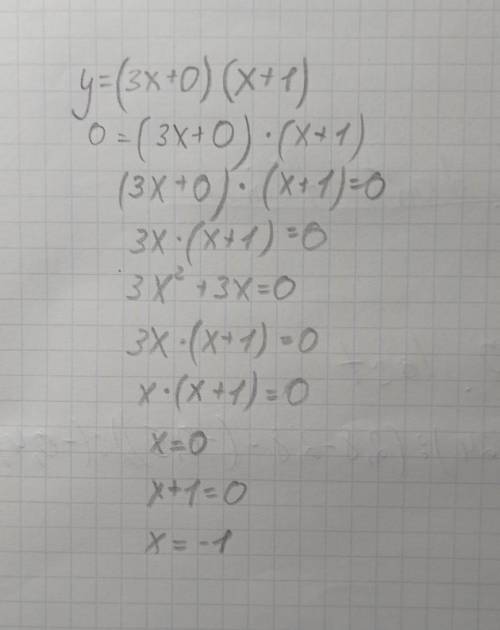 y=(3x+0)(x+1)
0=(3x+0)·(x+1)
(3x+0)·(x+1)=0
3x·(x+1)=0
3x²+3x=0
3x·(x+1)=0
x·(x+1)=0
x=0
x+1=0
x=-1